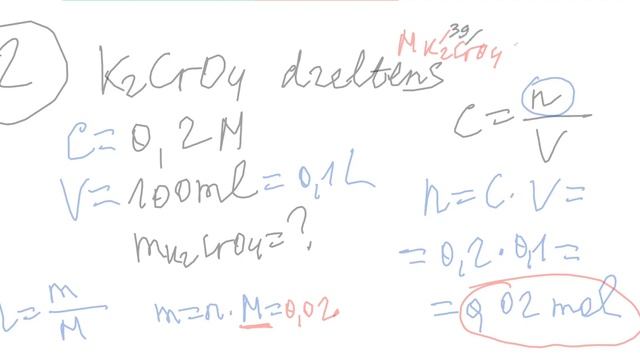 2 K₂CrO₄ dzeltens
M K₂CrO₄
39
C = n/V
C = 0,2M
V = 100ml = 0,1L
n = C · V =
mK₂CrO₄ = ?
= 0,2 · 0,1 =
= 0,02 mol
n = m/M
m = n · M = 0,02.